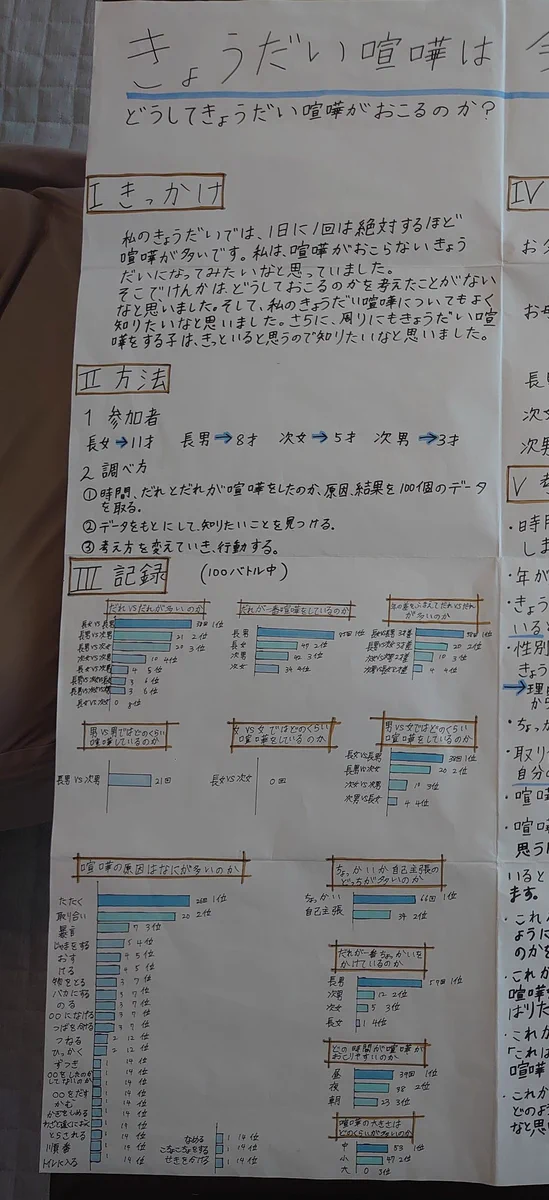 きょうだい喧嘩は
どうしてきょうだい喧嘩がおこるのか?
I きっかけ
私のきょうだいでは、1日に1回は絶対するほど
喧嘩が多いです。私は、喧嘩がおこらないきょう
だいになってみたいなと思っていました。
そこでけんかは、どうしておこるのかを考えたことがない
なと思いました。そして、私のきょうだい喧嘩についてもよく
知りたいなと思いました。さらに、周りにもきょうだい喧
嘩をする子は、きっといると思うので知りたいなと思いました。
II 方法
1 参加者
長女→11才 長男→8才 次女→5才 次男→3才
2 調べ方
①時間、だれとだれが喧嘩をしたのか、原因、結果を100個のデータ
を取る。
②データをもとにして、知りたいことを見つける。
③考え方を変えていき、行動する。
III 記録 (100バトル中)
だれVSだれが多いのか
長女VS長男 38回 1位
長男VS次男 21 2位
長男VS次女 20 3位
次女VS次男 10 4位
長女VS次男 4 5位
3 6位
3 6位
長女VS次女 0 8位
だれが一番喧嘩をしているのか
長男 1位
次女 2位
次男 42 3位
次女 34 4位
年の差をふまえてだれVSだれ
が多いのか
長女VS長男 3才差 38回 1位
長男VS次女 3才差 20 2位
次女VS次男 2才差 10 3位
4 4位
男VS男ではどのくらい
喧嘩しているのか
長男VS次男 21回
女VS女ではどのくらい
喧嘩をしているのか
長女VS次女 0回
男VS女ではどのくらい
喧嘩をしているのか
長女VS長男 38回 1位
長男VS次女 20 2位
次女VS次男 10 3位
次男VS長女 4 4位
喧嘩の原因はなにが多いのか
たたく 1位
取り合い 20 2位
暴言 7 3位
じゃまをする 5 4位
おす 4 5位
ける 4 5位
物をとる 3 7位
バカにする 3 7位
のる 3 7位
〇〇になげる 3 7位
つばを付ける 3 7位
つねる 2 12位
ひっかく 2 12位
ずつき 1 14位
〇〇をしたのか
してないのか 1 14位
〇〇をだす 1 14位
かむ 1 14位
かぎをしめる 1 14位
わざと遠くにおく 1 14位
とらされる 1 14位
順番 1 14位
トイレに入る 1 14位
なめる 1 14位
こちょこちょをする 1 14位
せきをかける 1 14位
ちょっかいか自己主張の
どっちが多いのか
ちょっかい 66回 1位
自己主張 34 2位
だれが一番ちょっかいを
かけているのか
長男 57回 1位
次男 12 2位
次女 5 3位
長女 1 4位
どの時間が喧嘩が
おこりやすいのか
昼 39回 1位
夜 38 2位
朝 23 3位
喧嘩の大きさは
どのくらいが多いのか
中 53 1位
小 47 2位
大 0 3位
IV
お父
お母
長男
次女
次男
V 考
・時間
しま
・年が
・きょう
いると
・性別
きょう
→理由
から
・ちょっ
・取り
自分の
・喧嘩
・喧嘩
思う
いると
ます。
・これ
ように
のかを
・これか
喧嘩
ばりた
・これか
「これは
喧嘩
・これか
どのよ
なと思い